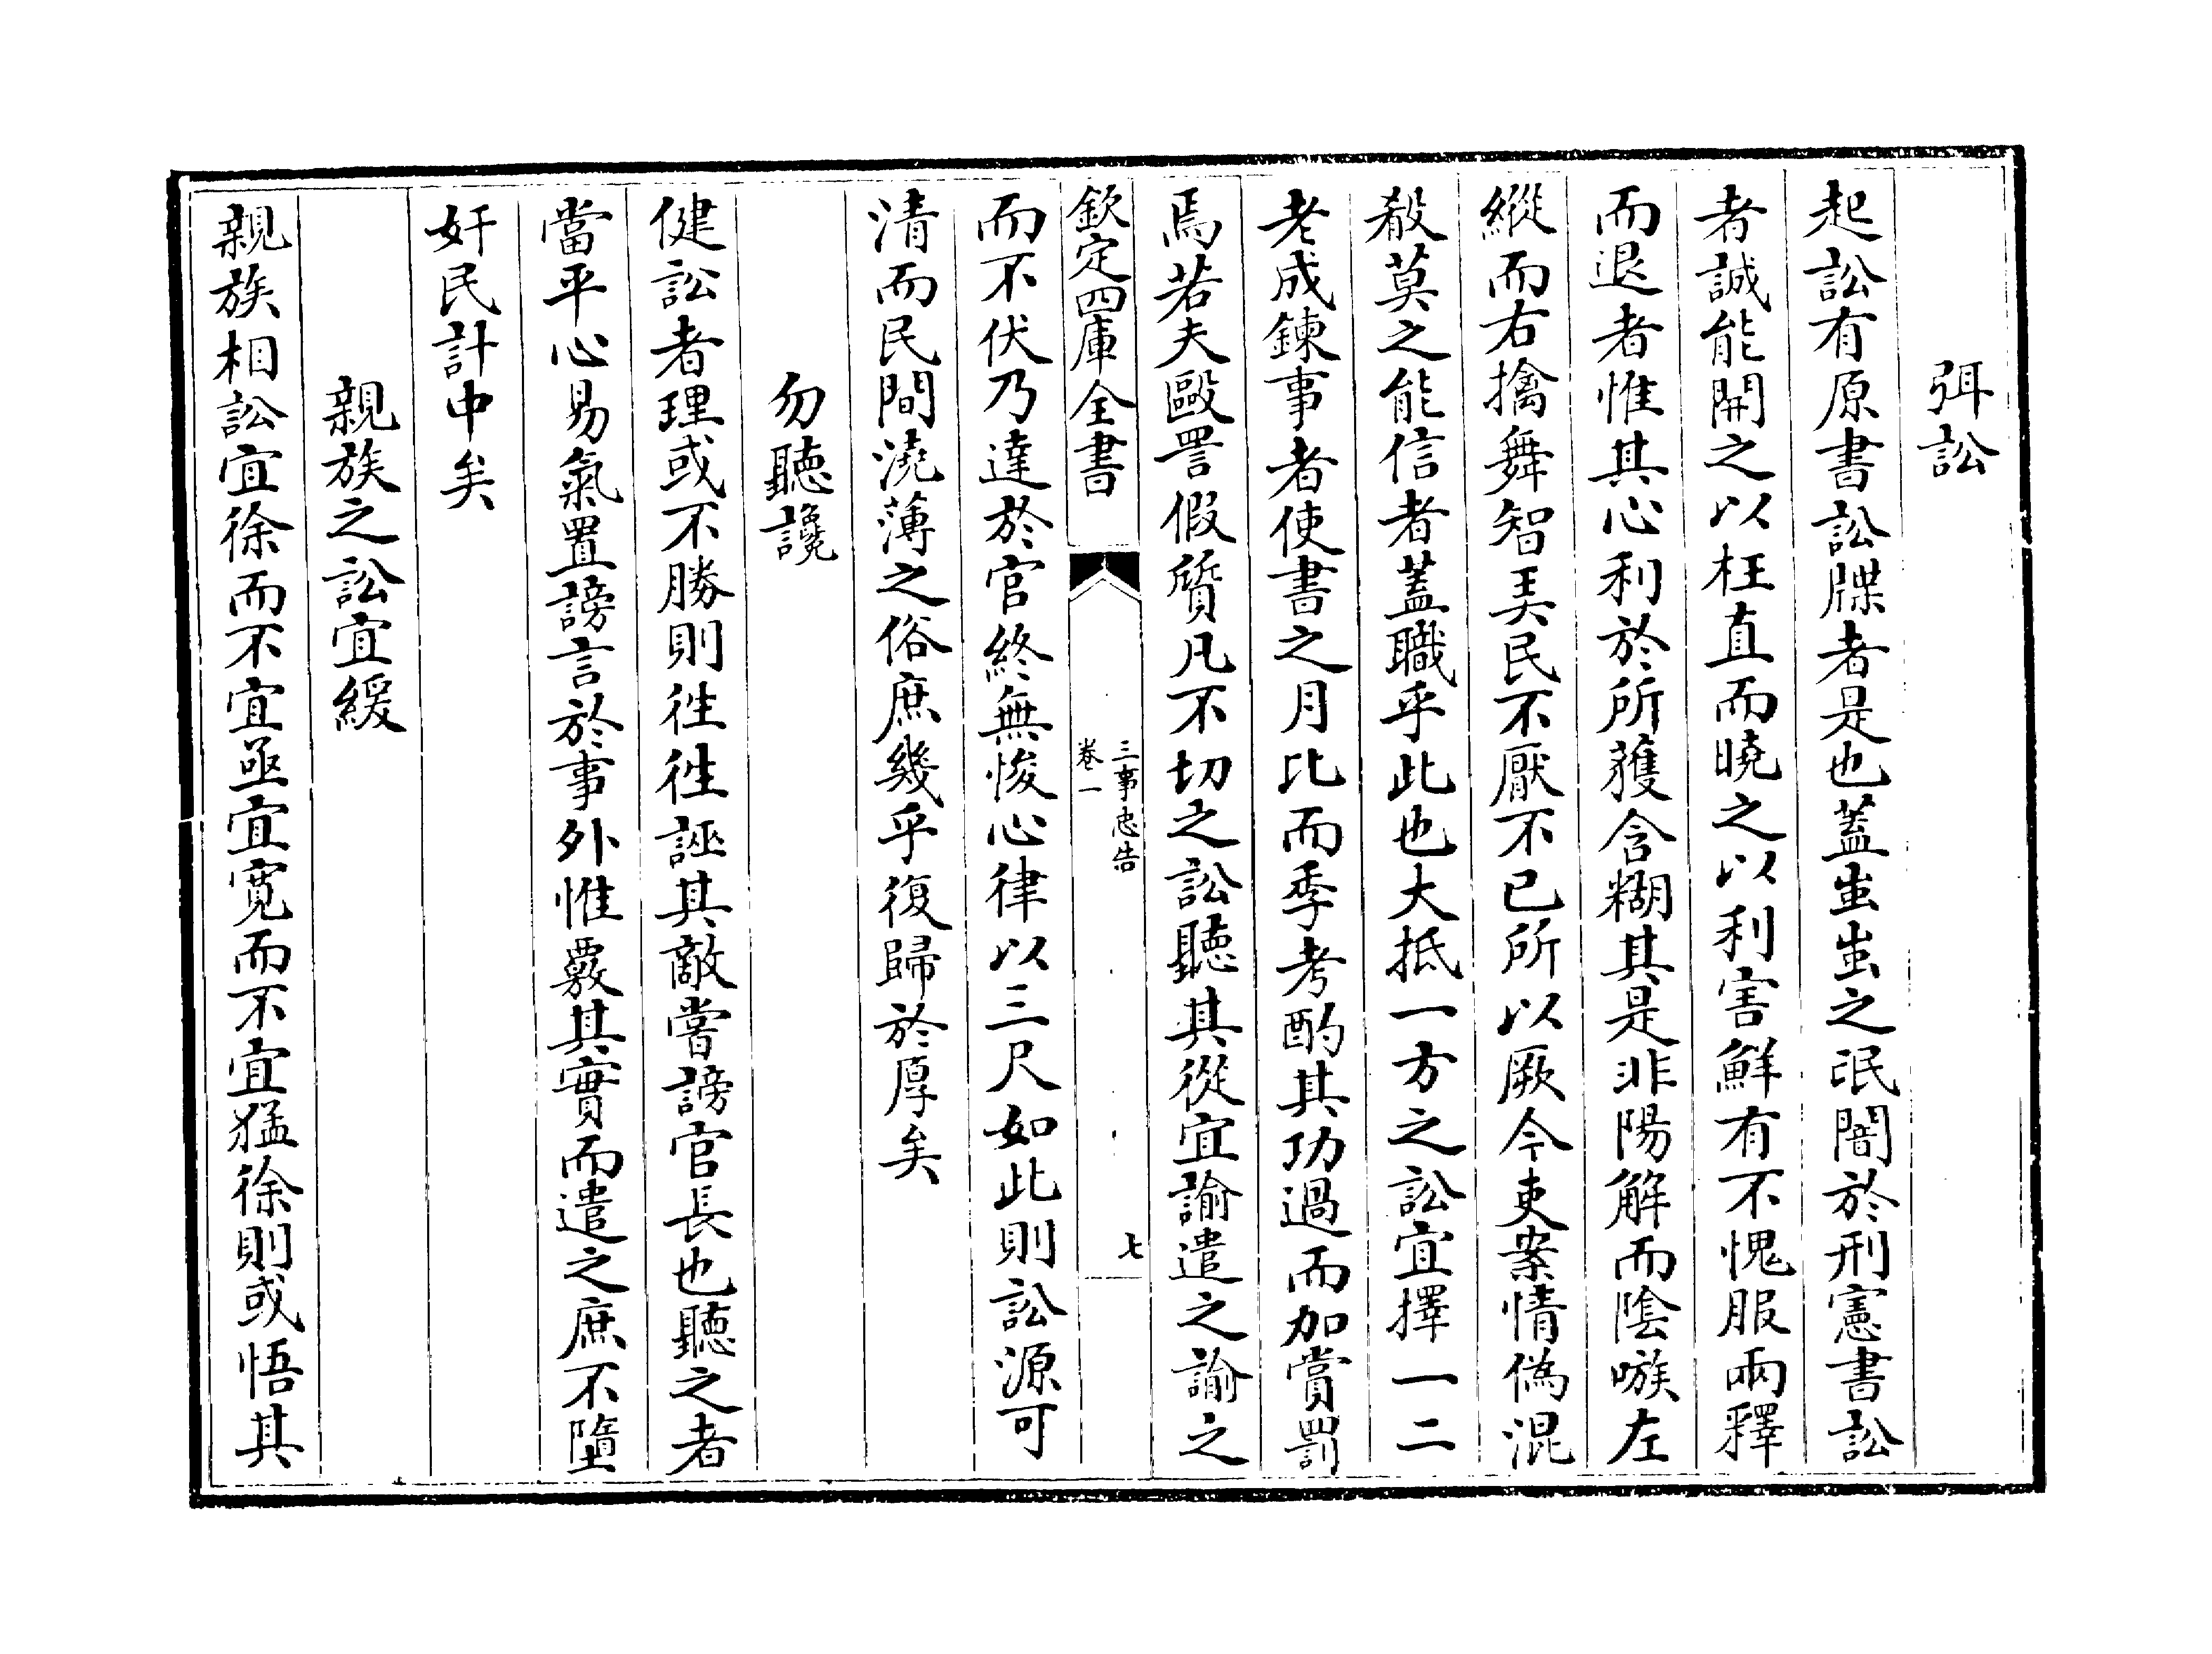 弭訟
起訟有原書訟牒者是也蓋蚩蚩之氓闇於刑憲書訟
者誠能開之以枉直而曉之以利害鮮有不愧服兩釋
而退者惟其心利於所獲含糊其是非陽解而陰嗾左
縱而右擒舞智弄民不厭不已所以厥今吏案情偽混
殽莫之能信者蓋職乎此也大抵一方之訟宜擇一二
老成鍊事者使書之月比而季考酌其功過而加賞罰
焉若夫毆詈假質凡不切之訟聽其從宜諭遣之諭之
欽定四庫全書
三事忠告
卷一
七
而不伏乃達於官終無悛心律以三尺如此則訟源可
清而民間澆薄之俗庶幾乎復歸於厚矣
勿聽讒
健訟者理或不勝則徃徃誣其敵嘗謗官長也聽之者
當平心易氣置謗言於事外惟覈其實而遣之庶不墮
奸民計中矣
親族之訟宜緩
親族相訟宜徐而不宜亟宜寛而不宜猛徐則或悟其